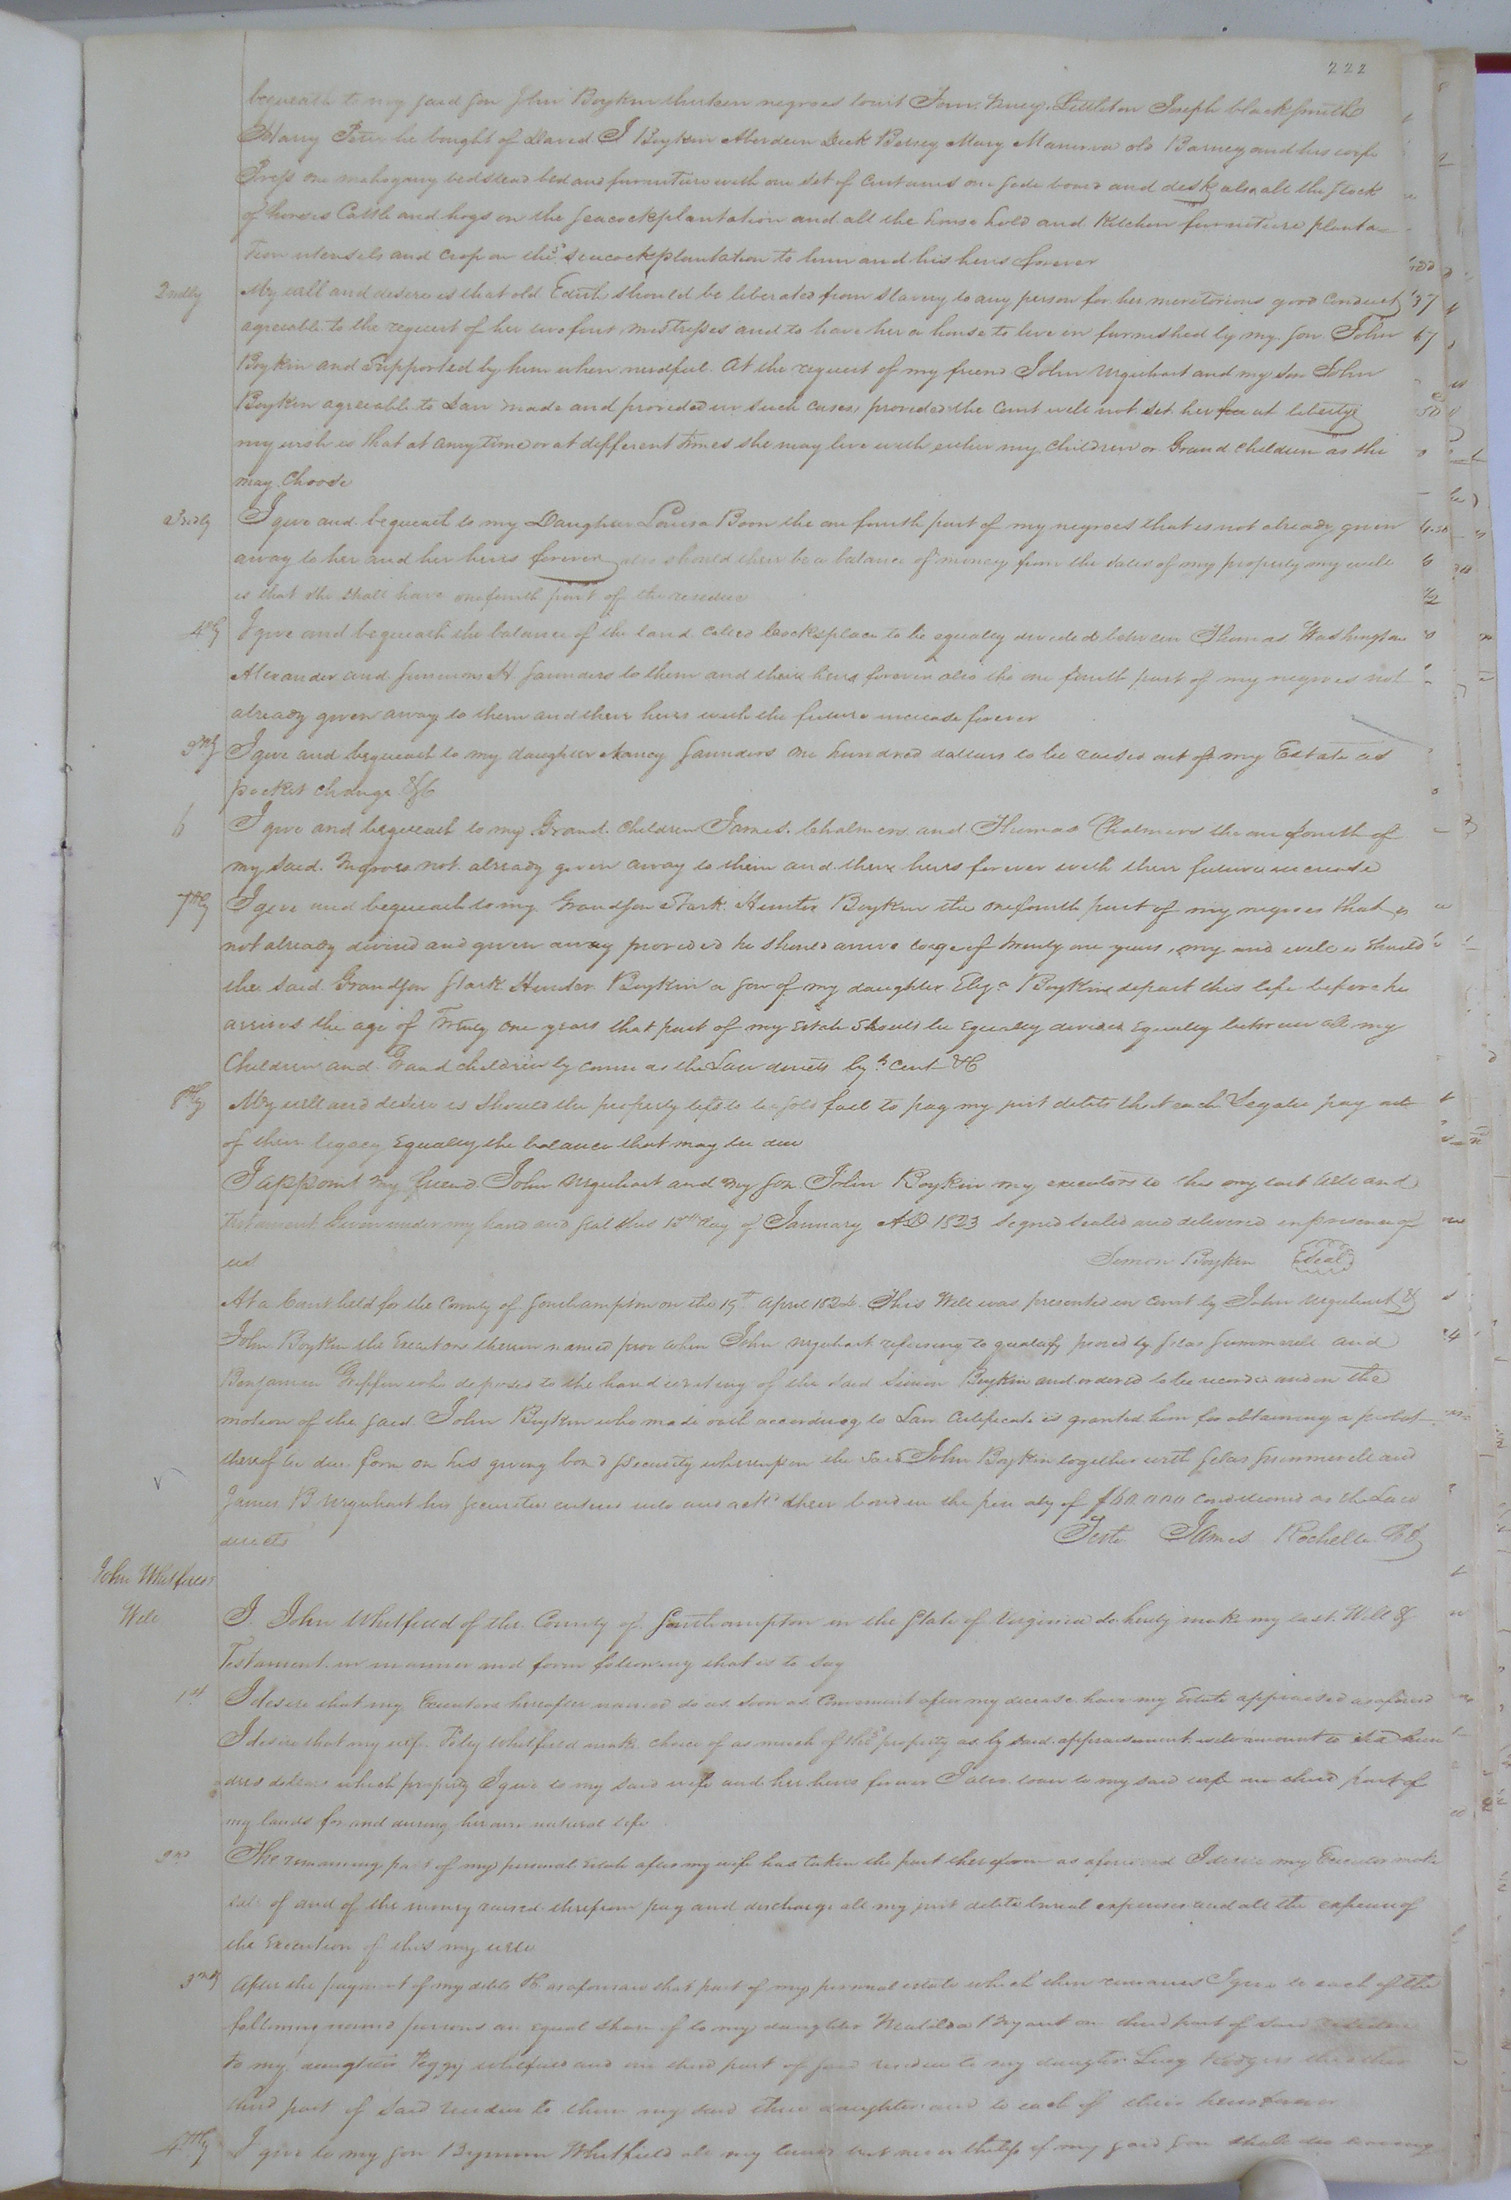 222
bequeath to my said son John Boykin thirteen negroes towit Tom, Littleton Joseph blacksmith
Harry Peter he bought of David J Boykin Aberdeen Dick Betsey Mary Manerva old Barney and his wife
one mahogany bedstead bed and furniture with one set of curtains one side board and desk also all the stock
of horses Cattle and hogs on the seacock plantation and all the house hold and Kitchen furniture planta-
tion utensils and crop on the sd seacock plantation to him and his heirs forever
2ndly My will and desire is that old Edith should be liberated from slavery to any person for her meritorious good conduct
agreeable to the request of her two first mistresses and to have her a house to live in furnished by my son John
Boykin and supported by him when needful. At the request of my friend John Urquhart and my son John
Boykin agreeable to Law made and provided in such cases, provided the Court will not set her free at liberty
my wish is that at any time or at different times she may live with either my children or Grand children as she
may Choose
3rdly I give and bequeath to my Daughter Louisa Boon the one fourth part of my negroes that is not already given
away to her and her heirs forever also should there be a balance of money from the sales of my property my will
is that she shall have one fourth part of the residue
4thly I give and bequeath the balance of the land called Cocksplace to be equally divided between Thomas Washington
Alexander and Simmons H Saunders to them and their heirs forever also the one fourth part of my negroes not
already given away to them and their heirs with the future increase forever
I give and bequeath to my daughter Nancy Saunders one hundred dollars to be raised out of my Estate as
pocket change &C
6 I give and bequeath to my Grand Children James Chalmers and Thomas Chalmers the one fourth of
my said Negroes not already given away to them and their heirs forever with their future increase
7thly I give and bequeath to my Grandson Stark Hunter Boykin the one fourth part of my negroes that is
not already divised and given away provided he should arive to age of twenty one years, my and will is should
the said Grandson Stark Hunter Boykin a son of my daughter Eliza Boykins depart this life before he
arrives the age of Twenty one years that part of my estate should be Equally divided Equally between all my
Children and Grand children by course as the Law directs by Cent &C
8thly My will and desire is should the property left to be sold fail to pay my just debts that each Legatee pay out
of their legacy Equally the balance that may be due
I appoint my friend John Urquhart and my son John Boykin my executors to this my last Will and
Testament Given under my hand and seal this 15th day of January AD 1823 signed sealed and delivered in presence of
us Simon Boykin Seal
At a Court held for the County of Southampton on the 19th April 1824 This Will was presented in Court by John Urquhart &
John Boykin the Executors therein named when John Urquhart refusing to qualify proved by Silas Summerell and
Benjamin Griffin who deposed to the hand writing of the said Simon Boykin and ordered to be recorded and on the
motion of the said John Boykin who made oath according to Law Certificate is granted him for obtaining a probat
thereof in due form on his giving bond & security whereupon the said John Boykin together with Silas Summerell and
James B Urquhart his securities entered into and ackd their bond in the penalty of $60.000 conditioned as the Law
directs Teste James Rochelle
John Whitfields
Will I John Whitfield of the County of Southampton in the State of Virginia do hereby make my last Will &
Testament in manner and form following that is to say
1st I desire that my Executors hereafter named do as soon as Convenient after my decease have my Estate appraised as aforesd
I desire that my wife Polly Whitfield make choice of as much of the sd property as by said appraisement will amount to hun
dred dollars which property I give to my said wife and her heirs forever I also loan to my said wife one third part of
my lands for and during her own natural life
2nd The remaining part of my personal Estate after my wife has taken the part therefrom as aforesaid I desire my Executor make
sale of and of the money raised therefrom pay and discharge all my just debts burial expenses and all the expence of
the Execution of this my will
3rdly After the payment of my debts &C as aforesaid that part of my personal estate which then remains I give to each of the
following named persons an equal share of to my daughter Matilda Bryant one third part of said residue
to my daughter Peggy Whitfield and one third part of said residue to my daughter Lucy Rodgers the other
third part of said residue to them my said three daughters and to each of their heirs forever
4thly I give to my son Bynum Whitfield all my lands but nevertheless if my said son shall die leaving